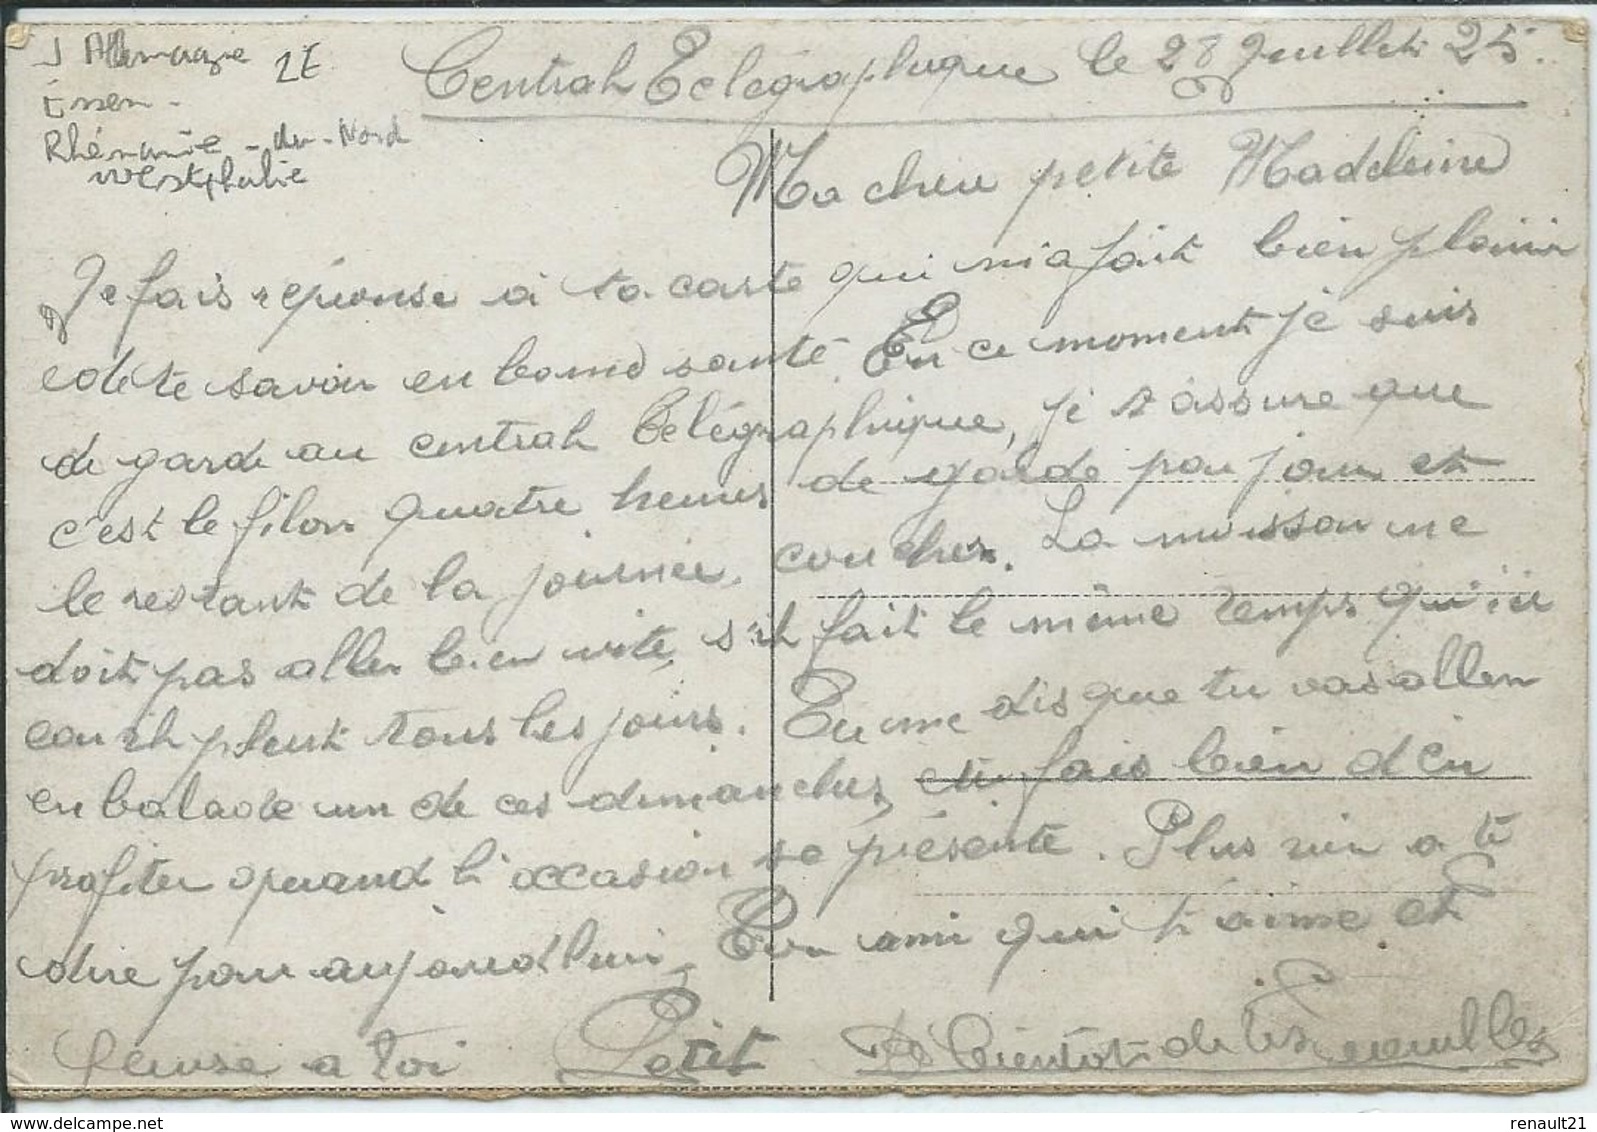 J Allemagne 1E
Essen -
Rhénanie - du - Nord
westphalie
Central Télégraphique le 28 Juillet 25.
Ma chere petite Madeleine
Je fais réponse a ta carte qui m'a fait bien plaisir
e de te savoir en bonne santé. En ce moment je suis
de garde au central Télégraphique, je t'assure que
c'est le filon quatre heures de garde par jour et
le restant de la journée coucher. La moisson ne
doit pas aller bien vite, s'il fait le même temps qu'ici
car il pleut tous les jours. Tu me dis que tu vas aller
en balade un de ces dimanches, fais bien d'en
profiter quand l'occasion se présente. Plus rien a te
dire pour aujourd'hui. Ton ami qui t'aime et
pense a toi Petit bientôt de tes nouvelles
delcampe.net
renault21